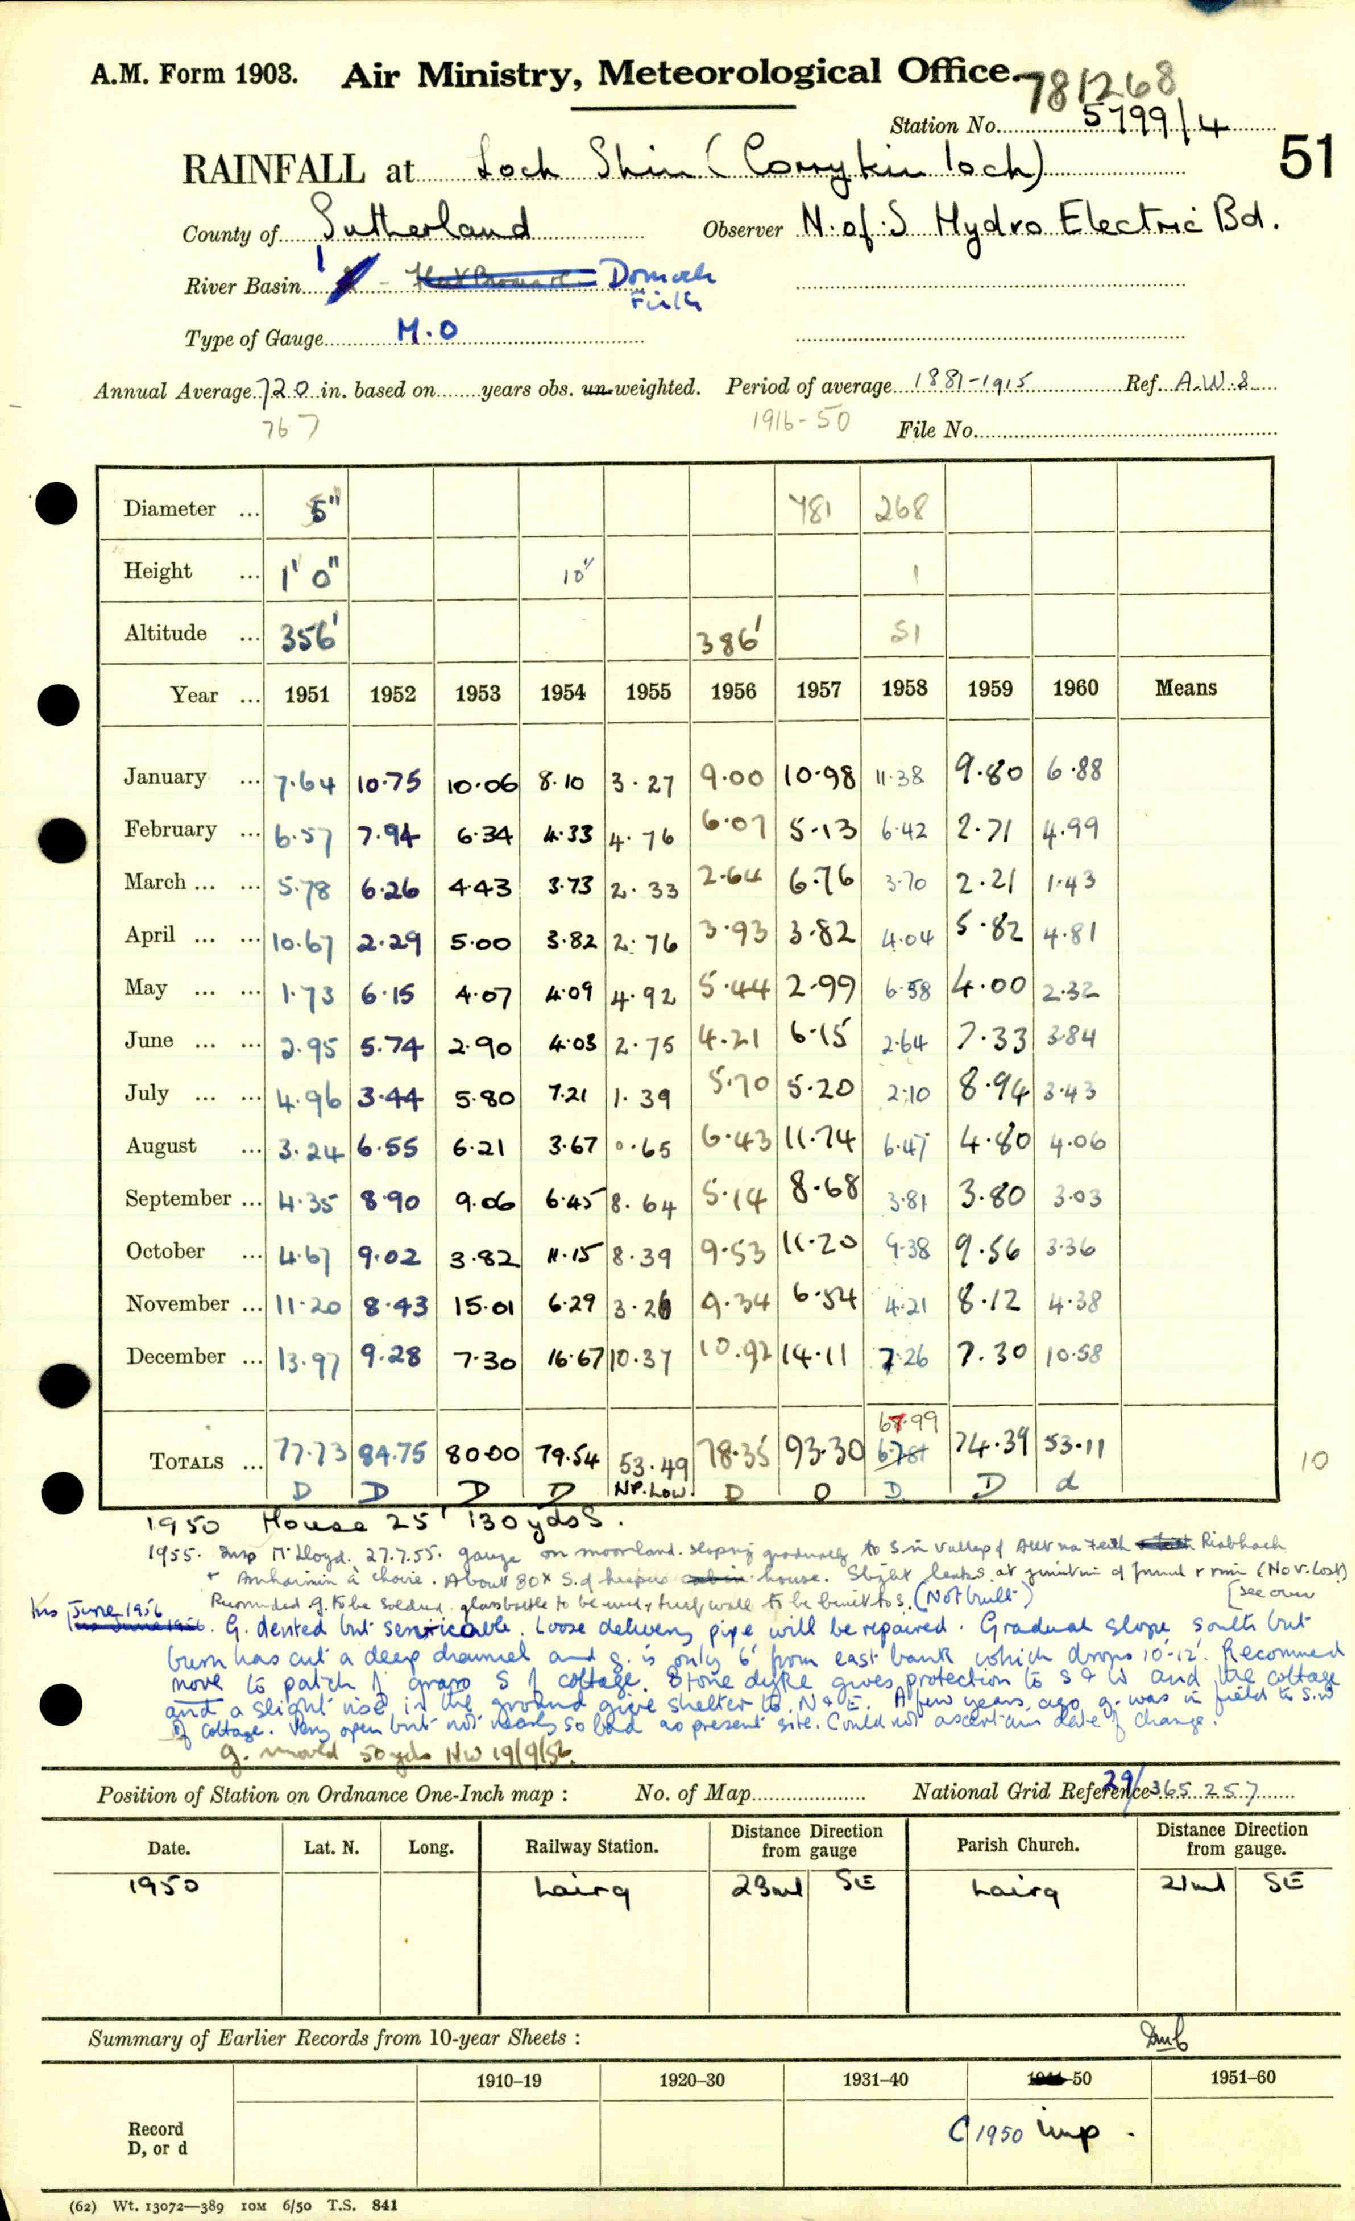 A.M. Form 1903. Air Ministry, Meteorological Office.
781268
Station No. 5799/4
51
RAINFALL at Loch Shin (Corrykinloch)
County of Sutherland Observer N. of S Hydro Electric Bd.
River Basin 1 Dornoch Firth
Type of Gauge M.O
Annual Average 72.0 in. based on years obs. un-weighted. Period of average 1881-1915 Ref. A.W.S
767 1916-50 File No.
Diameter ... 5" 781 268
Height ... 1' 0" 10" 1
Altitude ... 356' 386' 51
Year ... 1951 1952 1953 1954 1955 1956 1957 1958 1959 1960 Means
January ... 7.64 10.75 10.06 8.10 3.27 9.00 10.98 11.38 9.80 6.88
February ... 6.57 7.94 6.34 4.33 4.76 6.07 5.13 6.42 2.71 4.99
March ... ... 5.78 6.26 4.43 3.73 2.33 2.64 6.76 3.70 2.21 1.43
April ... ... 10.67 2.29 5.00 3.82 2.76 3.93 3.82 4.04 5.82 4.81
May ... ... 1.73 6.15 4.07 4.09 4.92 5.44 2.99 6.58 4.00 2.32
June ... ... 2.95 5.74 2.90 4.03 2.75 4.21 6.15 2.64 7.33 3.84
July ... ... 4.96 3.44 5.80 7.21 1.39 5.70 5.20 2.10 8.94 3.43
August ... 3.24 6.55 6.21 3.67 0.65 6.43 11.74 6.47 4.80 4.06
September ... 4.35 8.90 9.06 6.45 8.64 5.14 8.68 3.81 3.80 3.03
October ... 4.67 9.02 3.82 11.15 8.39 9.53 11.20 9.38 9.56 3.36
November ... 11.20 8.43 15.01 6.29 3.26 9.34 6.54 4.21 8.12 4.38
December ... 13.97 9.28 7.30 16.67 10.37 10.92 14.11 7.26 7.30 10.58
67.99
TOTALS ... 77.73 84.75 80.00 79.54 53.49 78.35 93.30 67.81 74.39 53.11 10
D D D D NP. Low. D D D D d
1950 House 25' 130 yds S.
1955. Insp Mr Lloyd. 27.7.55. gauge on moorland. sloping gradually to S in valley of Allt na Feith Riabhach
+ . About 80x S. of keepers house. Slight leaks at junction of funnel & rim (Nov. lost)
g. to be soldered. glass bottle to be used & turf wall to be built to S. (Not built) [see over
Ins June 1956. G. dented but serviceable. Loose delivery pipe will be repaired. Gradual slope south but
burn has cut a deep channel and g. is only 6' from east bank which drops 10-12'. Recommend
move to patch of grass S of cottage. Stone dyke gives protection to S & W and the cottage
and a slight rise in the ground give shelter to N & E. A few years ago g. was in field to S.W
of cottage. Very open but not nearly so bad as present site. Could not ascertain date of change.
g. moved 50 yds NW 19/9/56.
Position of Station on Ordnance One-Inch map : No. of Map National Grid Reference 29/365 257
Date. Lat. N. Long. Railway Station. Distance from gauge Direction Parish Church. Distance from gauge. Direction
1950 Lairg 23ml SE Lairg 21ml SE
Summary of Earlier Records from 10-year Sheets :
1910–19 1920–30 1931–40 -50 1951–60
Record
D, or d C 1950 imp.
(62) Wt. 13072—389 IOM 6/50 T.S. 841